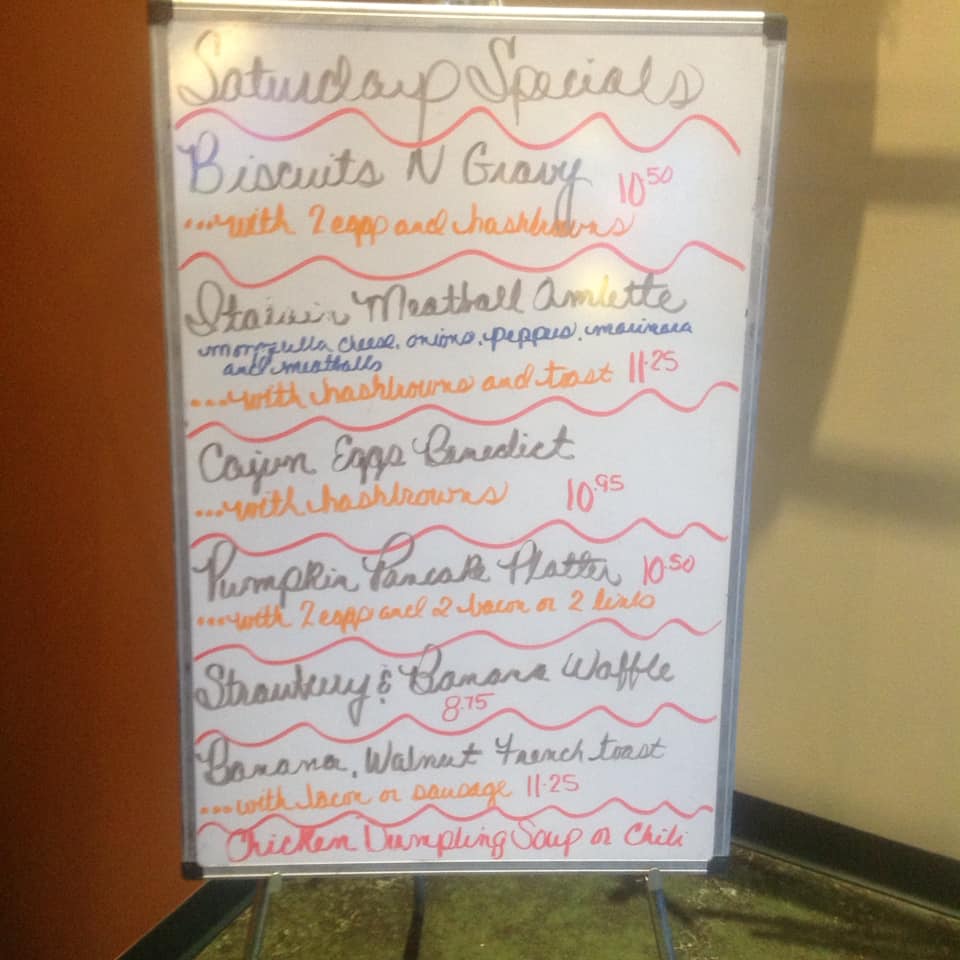 Saturday Specials
Biscuits N Gravy 10.50
...with 2 eggs and hashbrowns
Italain Meatball Omlette
mozzerella cheese, onions, peppers, marinara
and meatballs
...with hashbrowns and toast 11.25
Cajun Eggs Benedict
...with hashbrowns 10.95
Pumpkin Pancake Platter 10.50
...with 2 eggs and 2 bacon or 2 links
Strawberry & Banana Waffle
8.75
Banana, Walnut French toast
...with bacon or sausage 11.25
Chicken Dumpling Soup or Chili